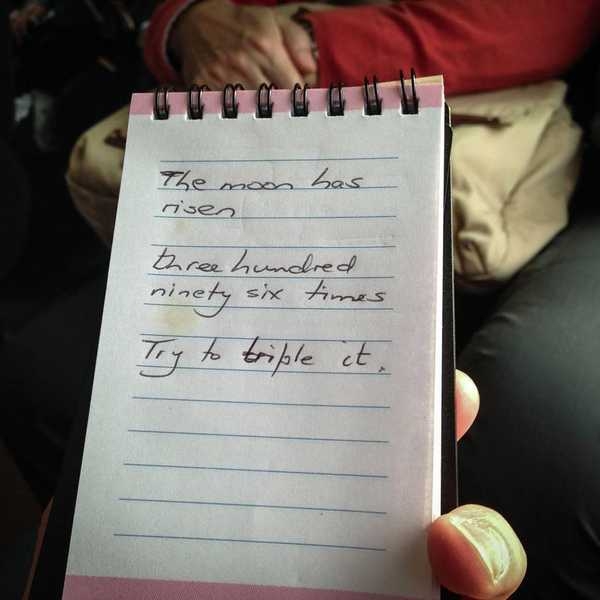 The moon has
risen
three hundred
ninety six times
Try to triple it.